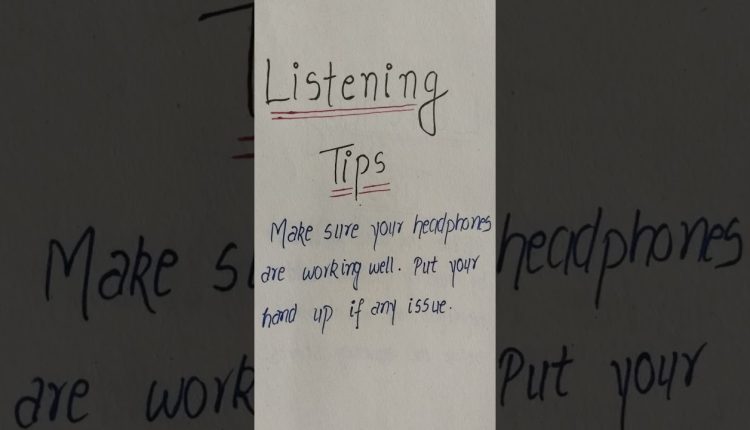 Listening
Tips
Make sure your headphones
are working well. Put your
hand up if any issue.